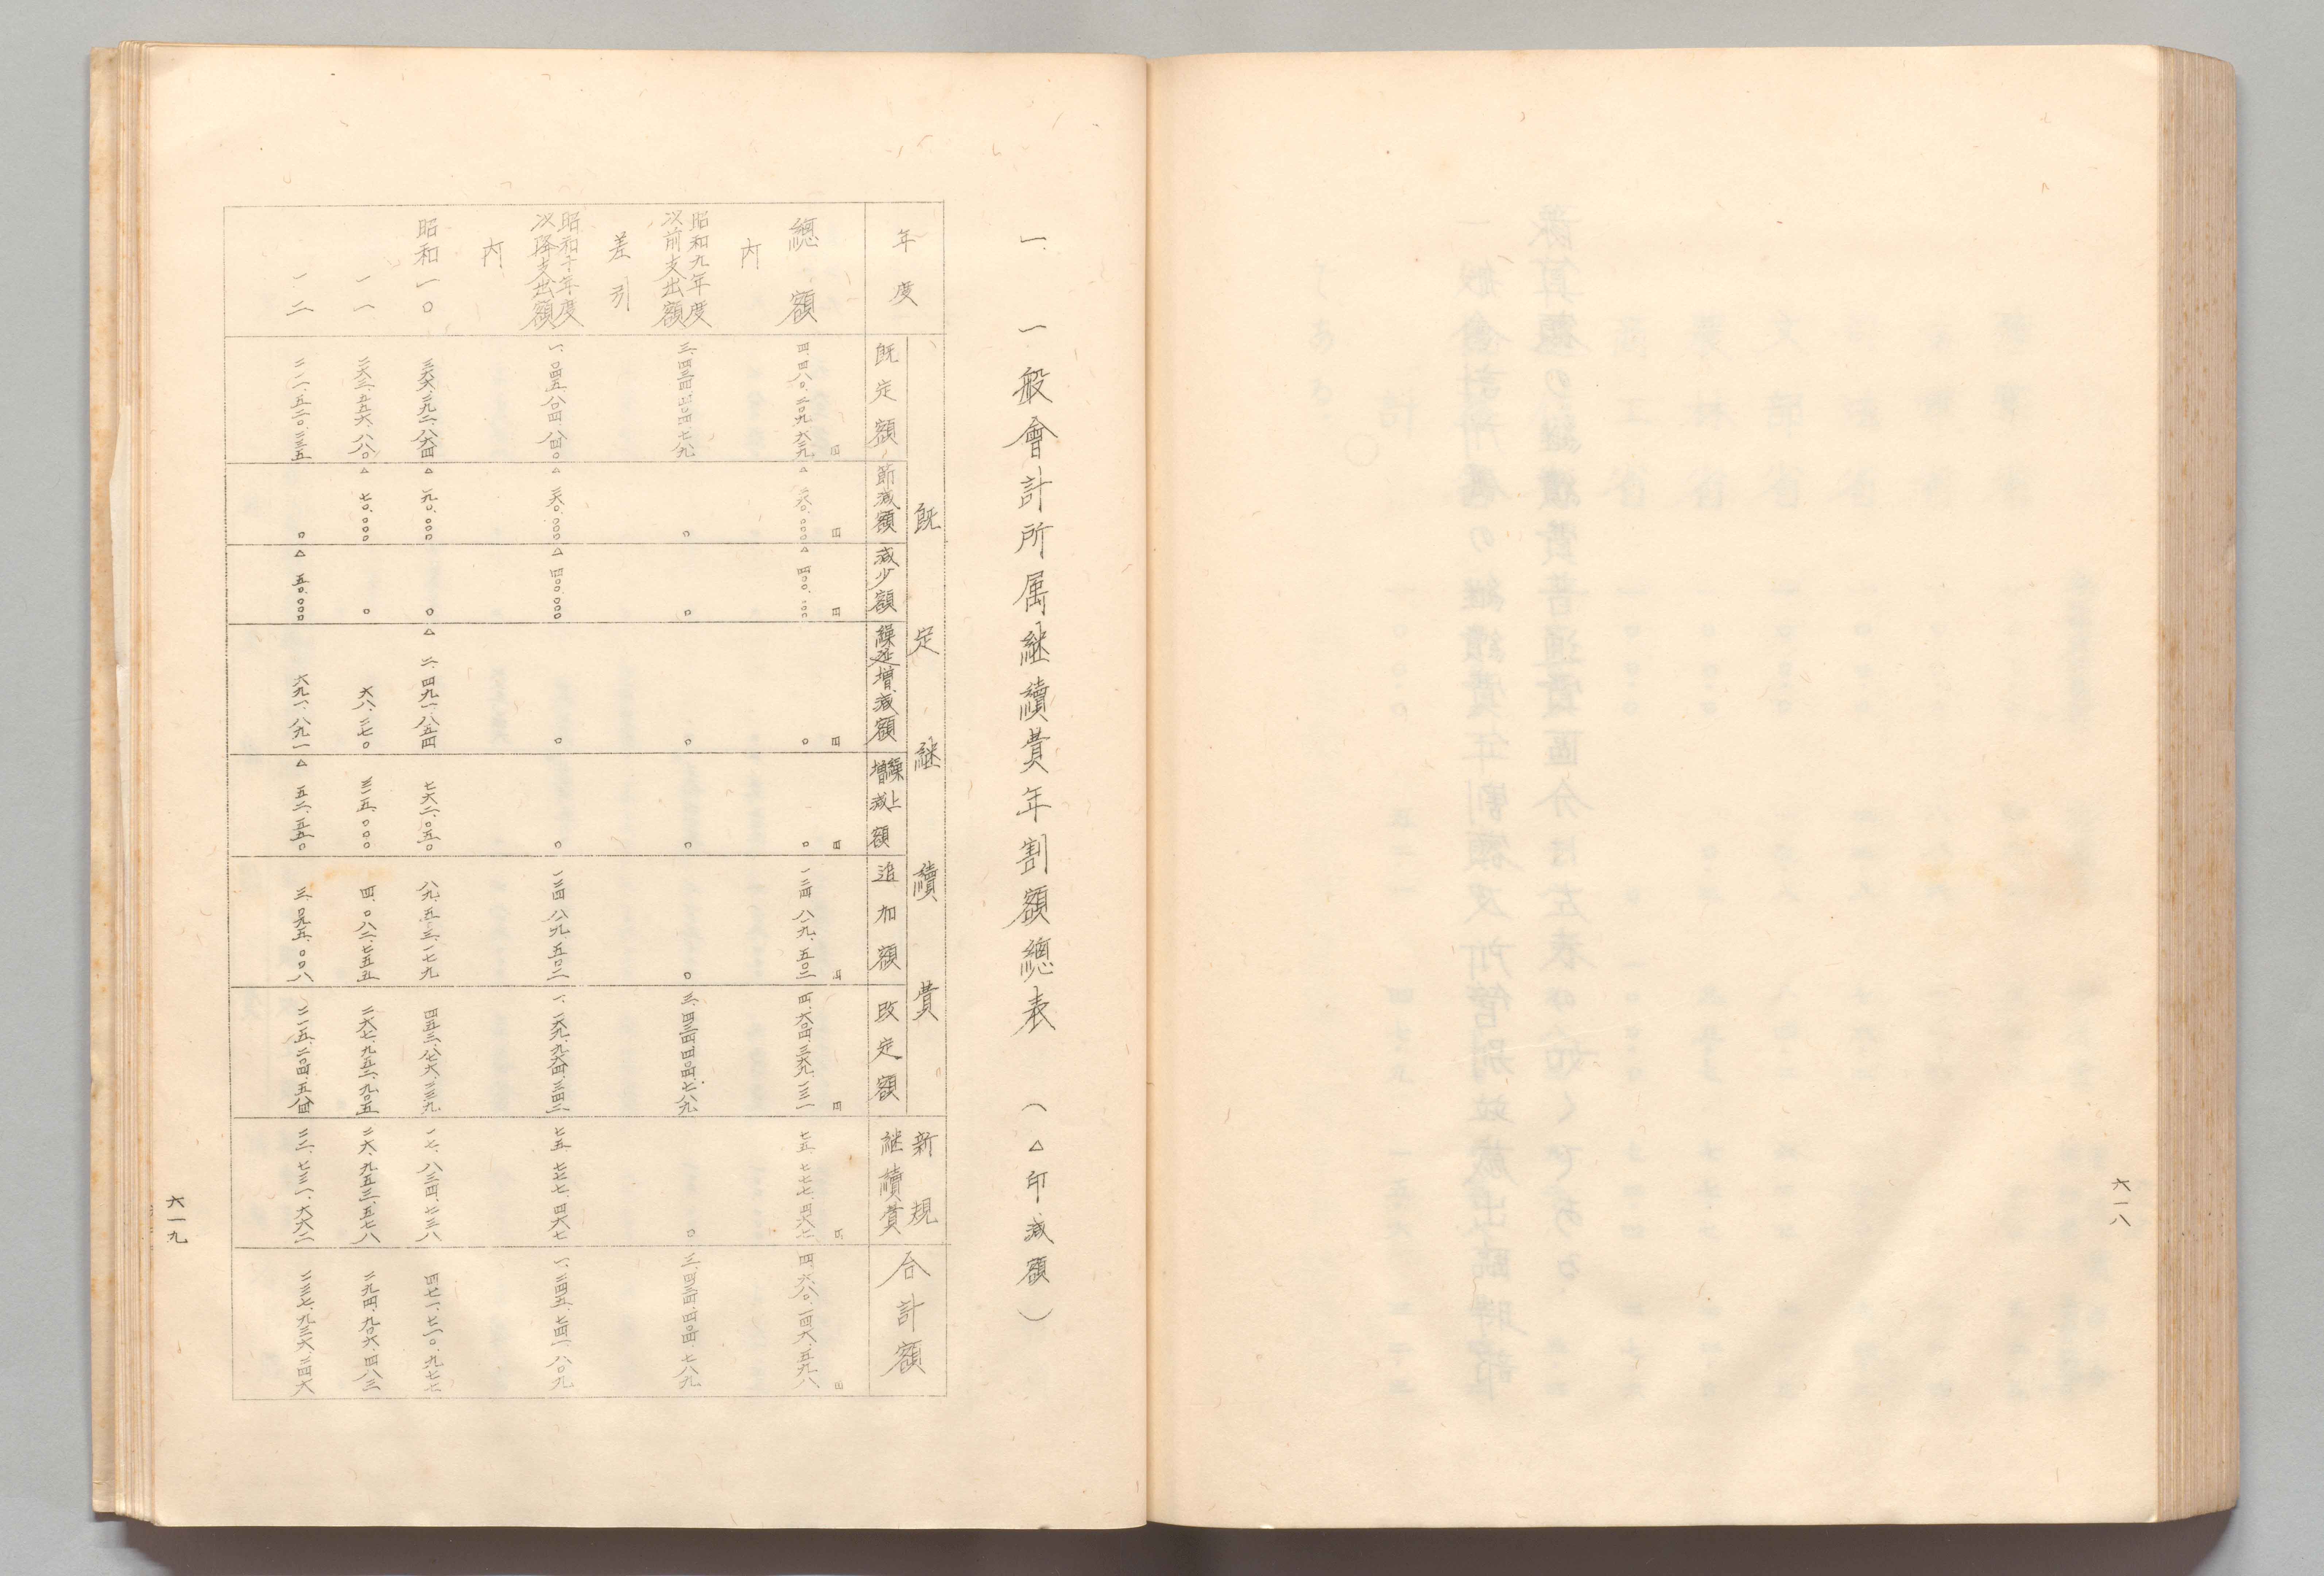 六一八
一、一般會計所屬継續費年割額總表 (△印減額)
年度
既定継續費
既定額
節減額
減少額
繰延増減額
繰上増減額
追加額
改定額
新規継續費
合計額
總額 四、四八〇、二〇九、六二九円 △二六〇、〇〇〇円 △四〇〇、〇〇〇円 〇円 〇円 一二四、八一九、五〇二円 四、六〇四、三六九、一三一円 七五、七七七、四六七円 四、六八〇、一四六、五九八円
内
昭和九年度以前支出額 三、四三四、四〇四、七八九 〇 〇 〇 〇 〇 三、四三四、四〇四、七八九 〇 三、四三四、四〇四、七八九
差引
昭和十年度以降支出額 一、〇四五、八〇四、八四〇 △二六〇、〇〇〇 △四〇〇、〇〇〇 〇 〇 一二四、八一九、五〇二 一、一六九、九六四、三四二 七五、七七七、四六七 一、二四五、七四一、八〇九
内
昭和一〇 三六六、二九二、八六四 △一九〇、〇〇〇 〇 △二、四九一、八五四 七六二、〇五〇 八九、五〇三、一七九 四五三、八七六、二三九 一七、八三四、七三八 四七一、七一〇、九七七
一一 二六三、五五六、八八〇 △七〇、〇〇〇 〇 六八、二七〇 三一五、〇〇〇 四、〇八二、七五五 二六七、九五二、九〇五 二六、九五三、五七八 二九四、九〇六、四八三
一二 二一一、五二〇、二三五 〇 △五〇、〇〇〇 六九一、八九一 △五二、五五〇 三、〇九五、〇〇八 二一五、二〇四、五八四 二二、七三一、六六二 二三七、九三六、二四六
六一九